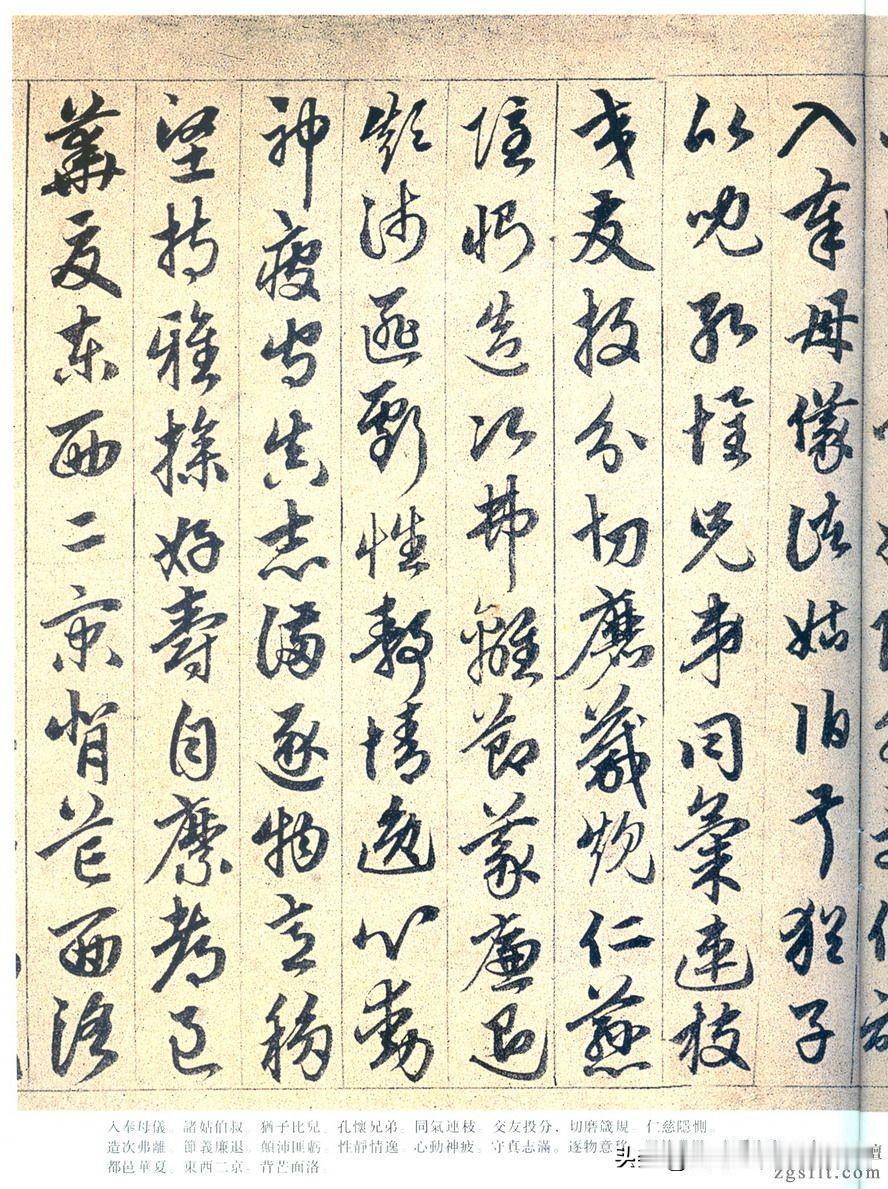 入奉母儀諸姑伯叔猶子
比兒孔懷兄弟同氣連枝
交友投分切磨箴規仁慈
隱惻造次弗離節義廉退
顛沛匪虧性靜情逸心動
神疲守真志滿逐物意移
堅持雅操好爵自縻都邑
華夏東西二京背芒面洛
入奉母儀。諸姑伯叔。猶子比兒。孔懷兄弟。同氣連枝。交友投分。切磨箴規。仁慈隱惻。
造次弗離。節義廉退。顛沛匪虧。性靜情逸。心動神疲。守真志滿。逐物意移
都邑華夏。東西二京。背芒面洛。
壇
zgsflt.com